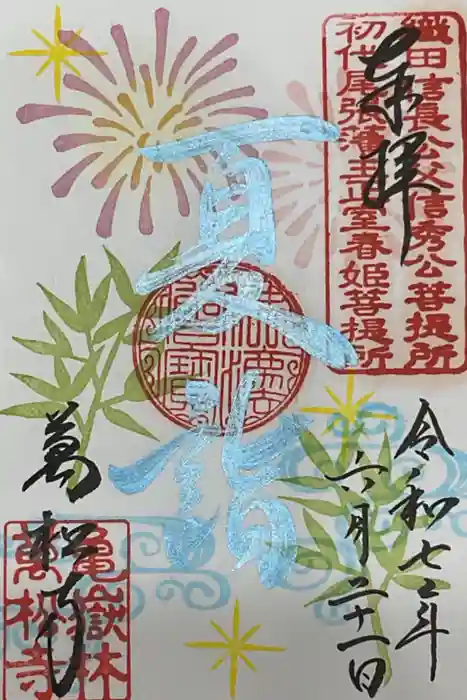 奉拝
織田信長公父信秀公菩提所
初代尾張藩主正室春姫菩提所
夏詣
令和七年
六月二十一日
萬松寺
亀嶽林
萬松寺